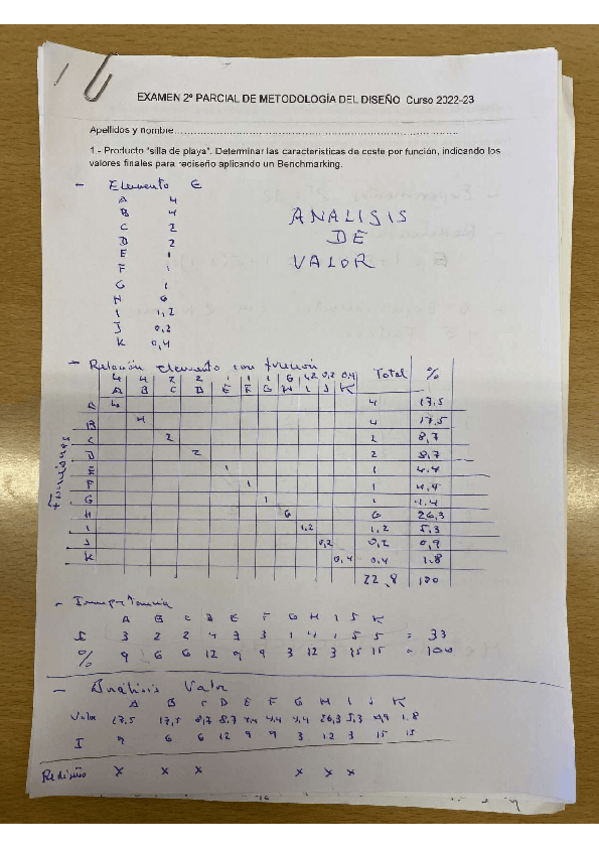 EXAMEN 2º PARCIAL DE METODOLOGÍA DEL DISEÑO Curso 2022-23
Apellidos y nombre
1.- Producto "silla de playa". Determinar las características de coste por función, indicando los
valores finales para rediseño aplicando un Benchmarking.
- Elemento €
A 4
B 4
C 2
D 2
E 1
F 1
G 1
H 6
I 1,2
J 0,2
K 0,4
ANALISIS
DE
VALOR
- Relación elemento con función
4 4 2 2 1 1 1 6 1,2 0,2 0,4
A B C D E F G H I J K Total %
Funciones
A 4 4 17,5
B 4 4 17,5
C 2 2 8,7
D 2 2 8,7
E 1 1 4.4
F 1 1 4,4
G 1 1 4.4
H 6 6 26,3
I 1,2 1,2 5,3
J 0,2 0,2 0,9
K 0,4 0.4 1.8
22,8 100
- Importancia
A B C D E F G H I J K
3 2 2 4 3 3 1 4 1 5 5 = 33
% 9 6 6 12 9 9 3 12 3 15 15 = 100
- Análisis Valor
A B C D E F G H I J K
Valor 17,5 17,5 8,7 8.7 4.4 4.4 4,4 26,3 5,3 0,9 1.8
I 9 6 6 12 9 9 3 12 3 15 15
Rediseño x x x x x x